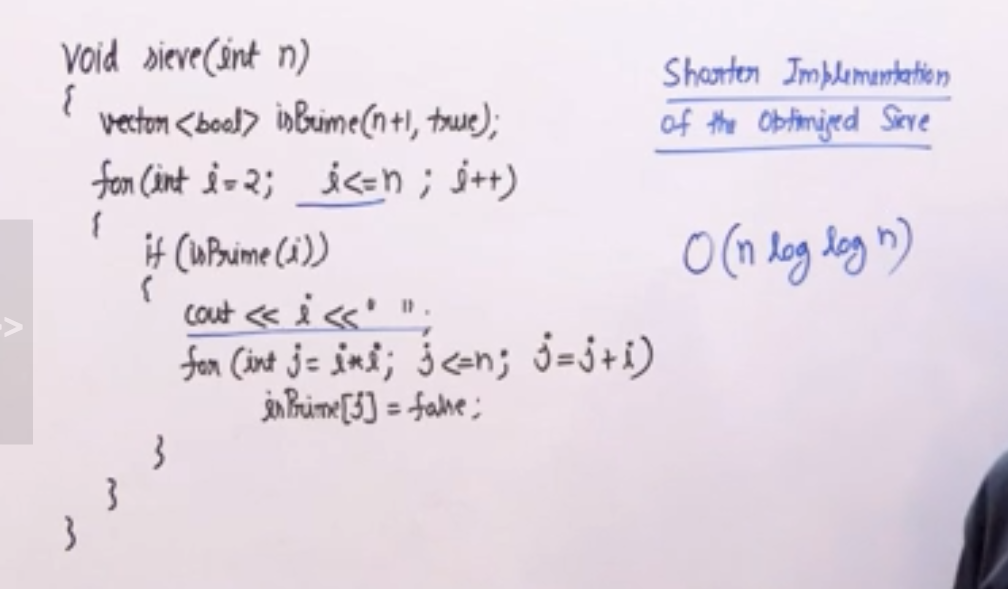 void sieve(int n)
{
vector<bool> isPrime(n+1, true);
for(int i=2; i<=n ; i++)
{
if (isPrime(i))
{
cout << i << " ";
for (int j= i*i; j<=n; j=j+i)
isPrime[j] = false;
}
}
}
Shorter Implementation
of the Optimized Sieve
O(n log log n)
>>